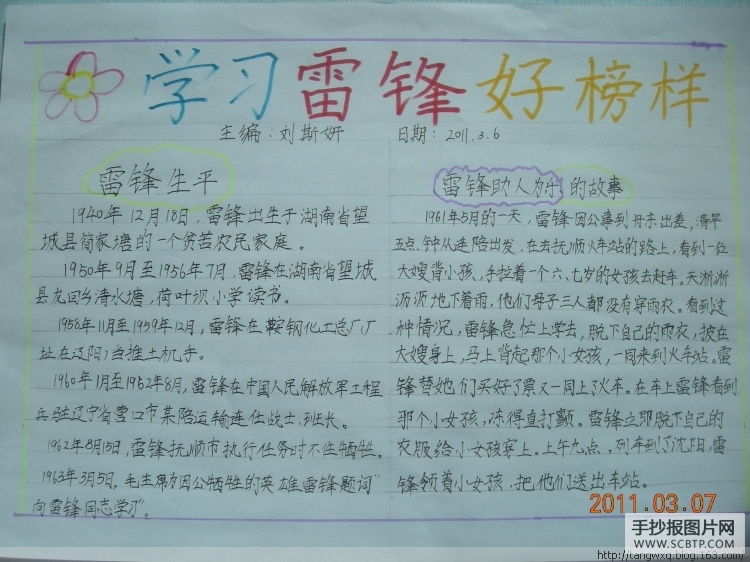 学习雷锋好榜样
主编：刘斯妍 日期：2011.3.6
雷锋生平
1940年12月18日，雷锋出生于湖南省望
城县简家塘的一个贫苦农民家庭。
1950年9月至1956年7月，雷锋在湖南省望城
县龙回乡清水塘，荷叶坝小学读书。
1958年11月至1959年12月，雷锋在鞍钢化工总厂厂
址在辽阳）当推土机手。
1960年1月至1962年8月，雷锋在中国人民解放军工程
兵驻辽宁省营口市某陪运输连任战士，班长。
1962年8月15日，雷锋抚顺市执行任务时不性牺牲。
1963年3月5日，毛主席为因公牺牲的英雄雷锋题词“
向雷锋同志学习”。
雷锋助人为乐的故事
1961年5月的一天，雷锋因公事到丹东出差，清早
五点钟从连陪出发，在去抚顺火车站的路上，看到一位
大嫂背小孩，手拉着一个六、七岁的女孩去赶车。天淅淅
沥沥地下着雨，他们母子三人都没有穿雨衣。看到这
种情况，雷锋急忙上学去，脱下自己的雨衣，披在
大嫂身上，马上背起那个小女孩，一同来到火车站。雷
锋替她们买好了票又一同上了火车。在车上雷锋看到
那个小女孩，冻得直打颤。雷锋立即脱下自己的
衣服给小女孩穿上。上午九点，列车到了沈阳，雷
锋领着小女孩，把他们送出车站。
2011.03.07
手抄报图片网
WWW.SCBTP.COM
http://tangwxq.blog.163.com/